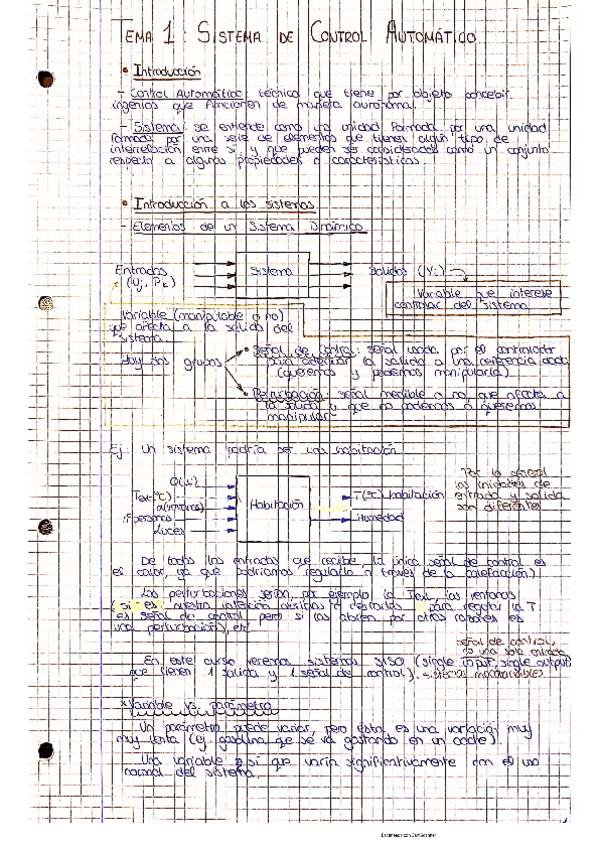 TEMA 1: SISTEMA DE CONTROL AUTOMÁTICO
• Introducción
- Control Automático: técnica que tiene por objeto concebir
ingenios que funcionen de manera autónoma.
- Sistema: se entiende como una unidad formada por una unidad
formada por una serie de elementos que tienen algún tipo de
interrelación entre sí y que pueden ser considerados como un conjunto
respecto a algunas propiedades o características.
• Introducción a los sistemas
- Elementos de un Sistema Dinámico
Entradas
(Uj, Pk)
Sistema
Salidas (Yi)
Variable que interese
controlar del sistema
Variable (manipulable o no)
que afecta a la salida del
sistema.
Hay dos grupos
• Señal de control: señal usada por el controlador
para adecuar la salida a una referencia dada
(queremos y podemos manipularla)
• Perturbación: señal medible o no que afecta a
la salida y que no podemos o queremos
manipular
Ej: Un sistema podría ser una habitación
Q(W)
Text(ºC)
a(ventanas)
#personas
Luces
Habitación
T(ºC) habitación
Humedad
Por lo general
las unidades de
entrada y salida
son diferentes
De todas las entradas que recibe, la única señal de control es
es calor, ya que podríamos regularla a través de la calefacción)
Las perturbaciones serían, por ejemplo la Text, las ventanas
(si es nuestra intención abrirlas o cerrarlas para regular la T
es señal de control, pero si las abren por otras razones es
una perturbación), etc
señal de control,
una sola entrada
En este curso veremos sistemas SISO (single input, single output,
que tienen 1 salida y 1 señal de control), sistemas monovariables
* Variable vs. parámetro
Un parámetro puede variar, pero ésta es una variación muy
muy lenta (ej. gasolina que se va gastando en un coche).
Una variable sí que varía significativamente con el uso
normal del sistema.
Escaneado con CamScanner